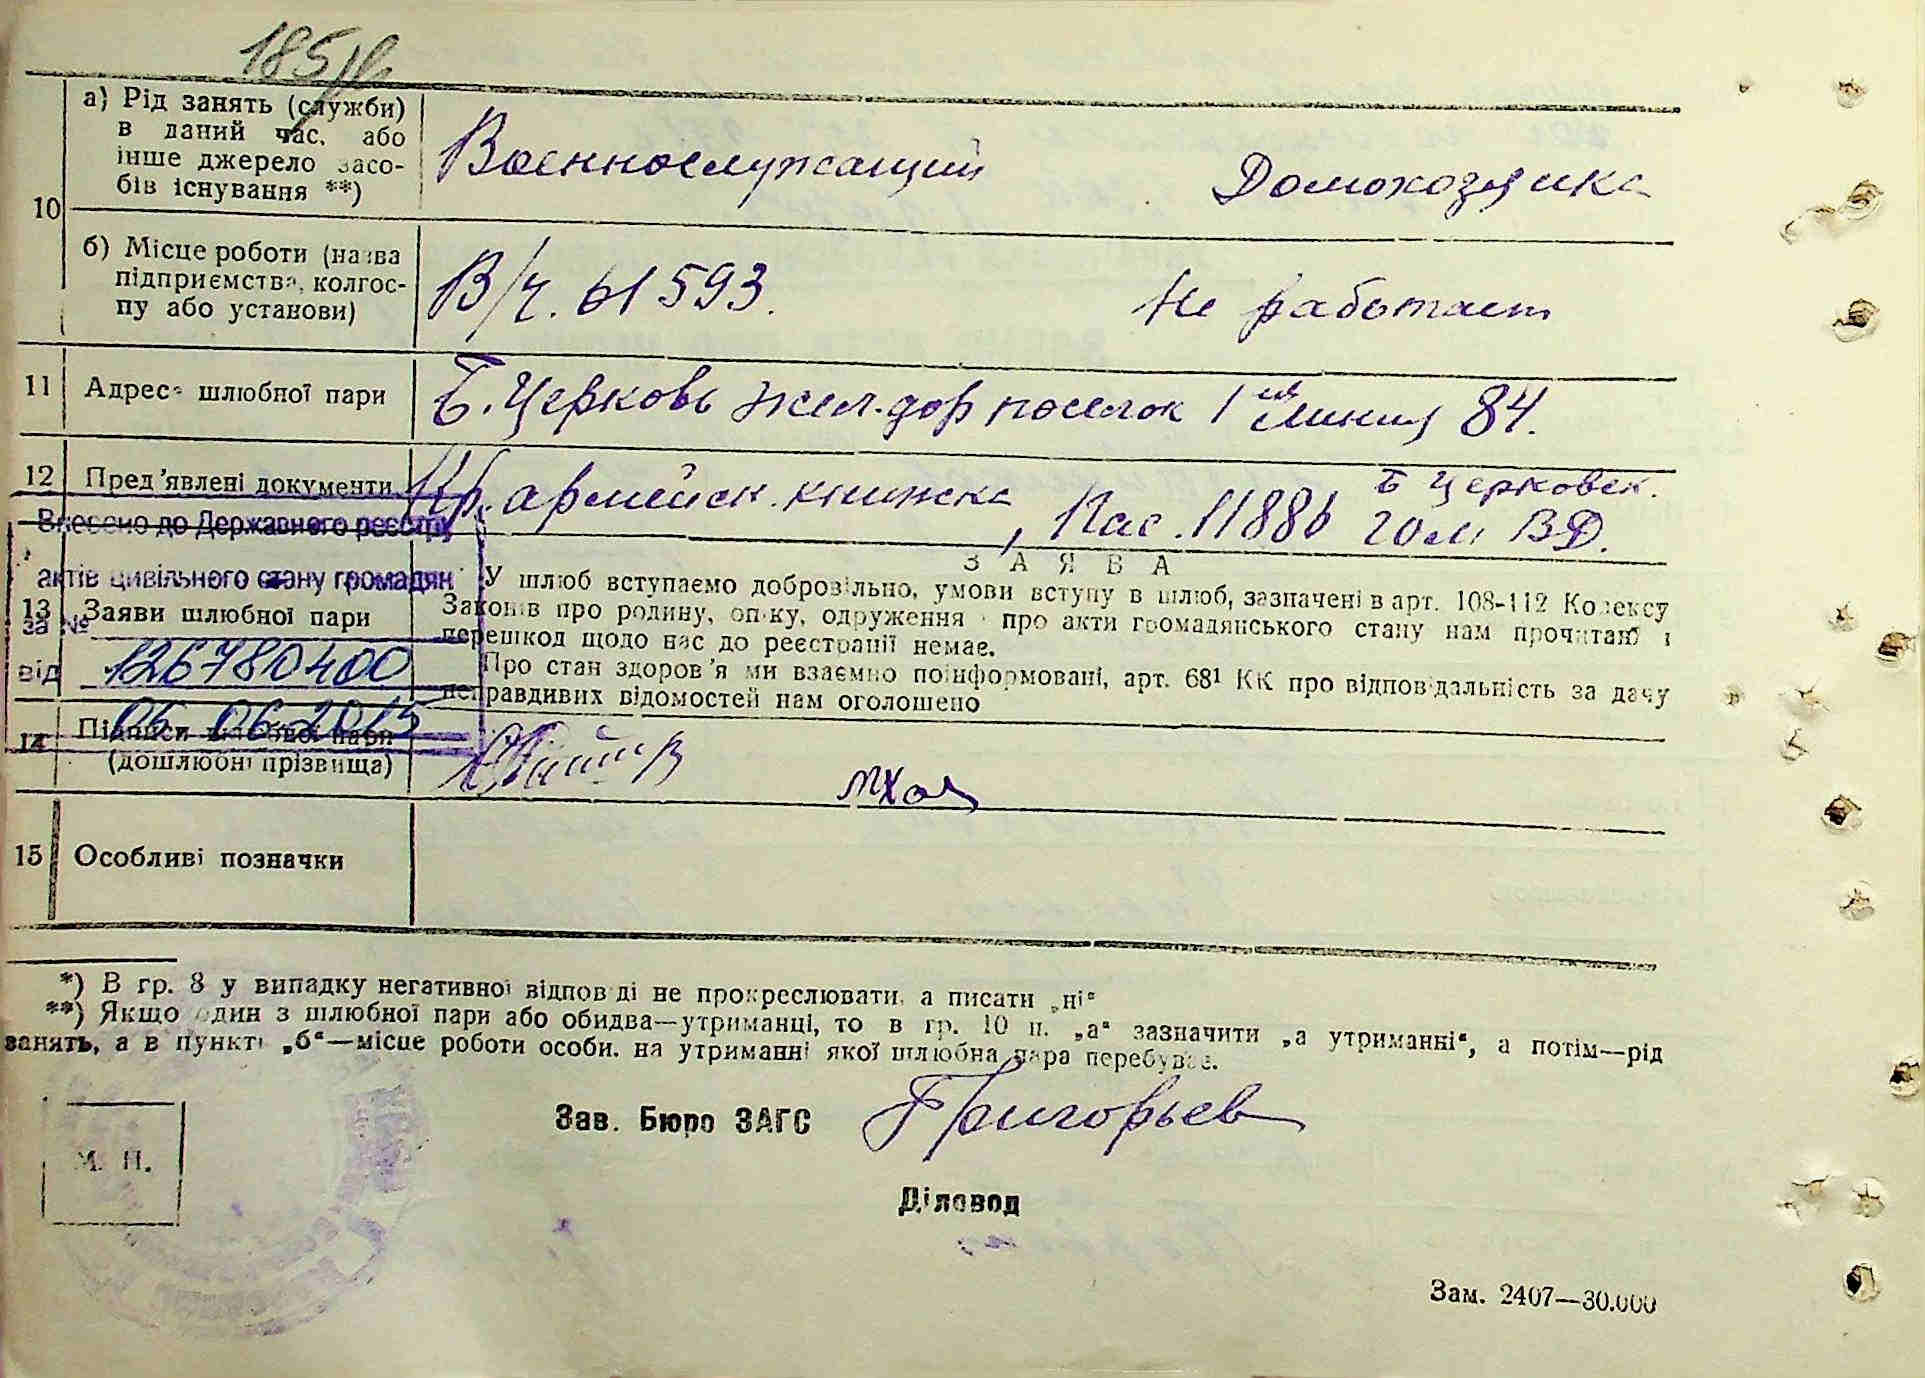 185
10
а) Рід занять (служби)
в даний час, або
інше джерело засо-
бів існування **)
Военнослужащий
Домохозяика
б) Місце роботи (назва
підприємства, колгос-
пу або установи)
В/ч. 61593.
Не работает
11
Адреса шлюбної пари
Б. Церковь жел. дор поселок 1 ая линия 84.
12
Пред'явлені документи
Кр. армейск. книжка, Пас.
Б Церковск.
ГОМ ВД.
Внесено до Державного реєстру
актів цивільного стану громадян
за №
126780400
від
06 06 2015
13
Заяви шлюбної пари
ЗАЯВА
У шлюб вступаємо добровільно, умови вступу в шлюб, зазначені в арт. 108-112 Кодексу
Законів про родину, опіку, одруження і про акти громадянського стану нам прочитані і
перешкод щодо нас до реєстрації немає.
Про стан здоров'я ми взаємно поінформовані, арт. 68¹ КК про відповідальність за дачу
неправдивих відомостей нам оголошено
14
Підписи шлюбної пари
(дошлюбні прізвища)
15
Особливі позначки
*) В гр. 8 у випадку негативної відповіді не прокреслювати, а писати „ні“
**) Якщо один з шлюбної пари або обидва—утриманці, то в гр. 10 п. „а“ зазначити „а утриманні“, а потім—рід
занять, а в пункті „б“—місце роботи особи, на утриманні якої шлюбна пара перебуває.
Зав. Бюро ЗАГС
Григорьев
М. П.
Діловод
Зам. 2407—30.000